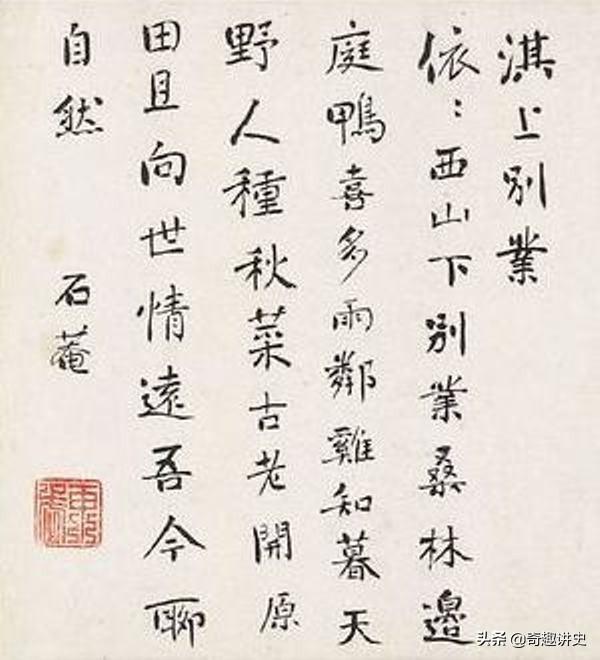 淇上別業
依：西山下別業桑林邊
庭鴨喜多雨鄰雞知暮天
野人種秋菜古老開原
田且向世情遠吾今聊
自然
石菴
头条 @奇趣讲史